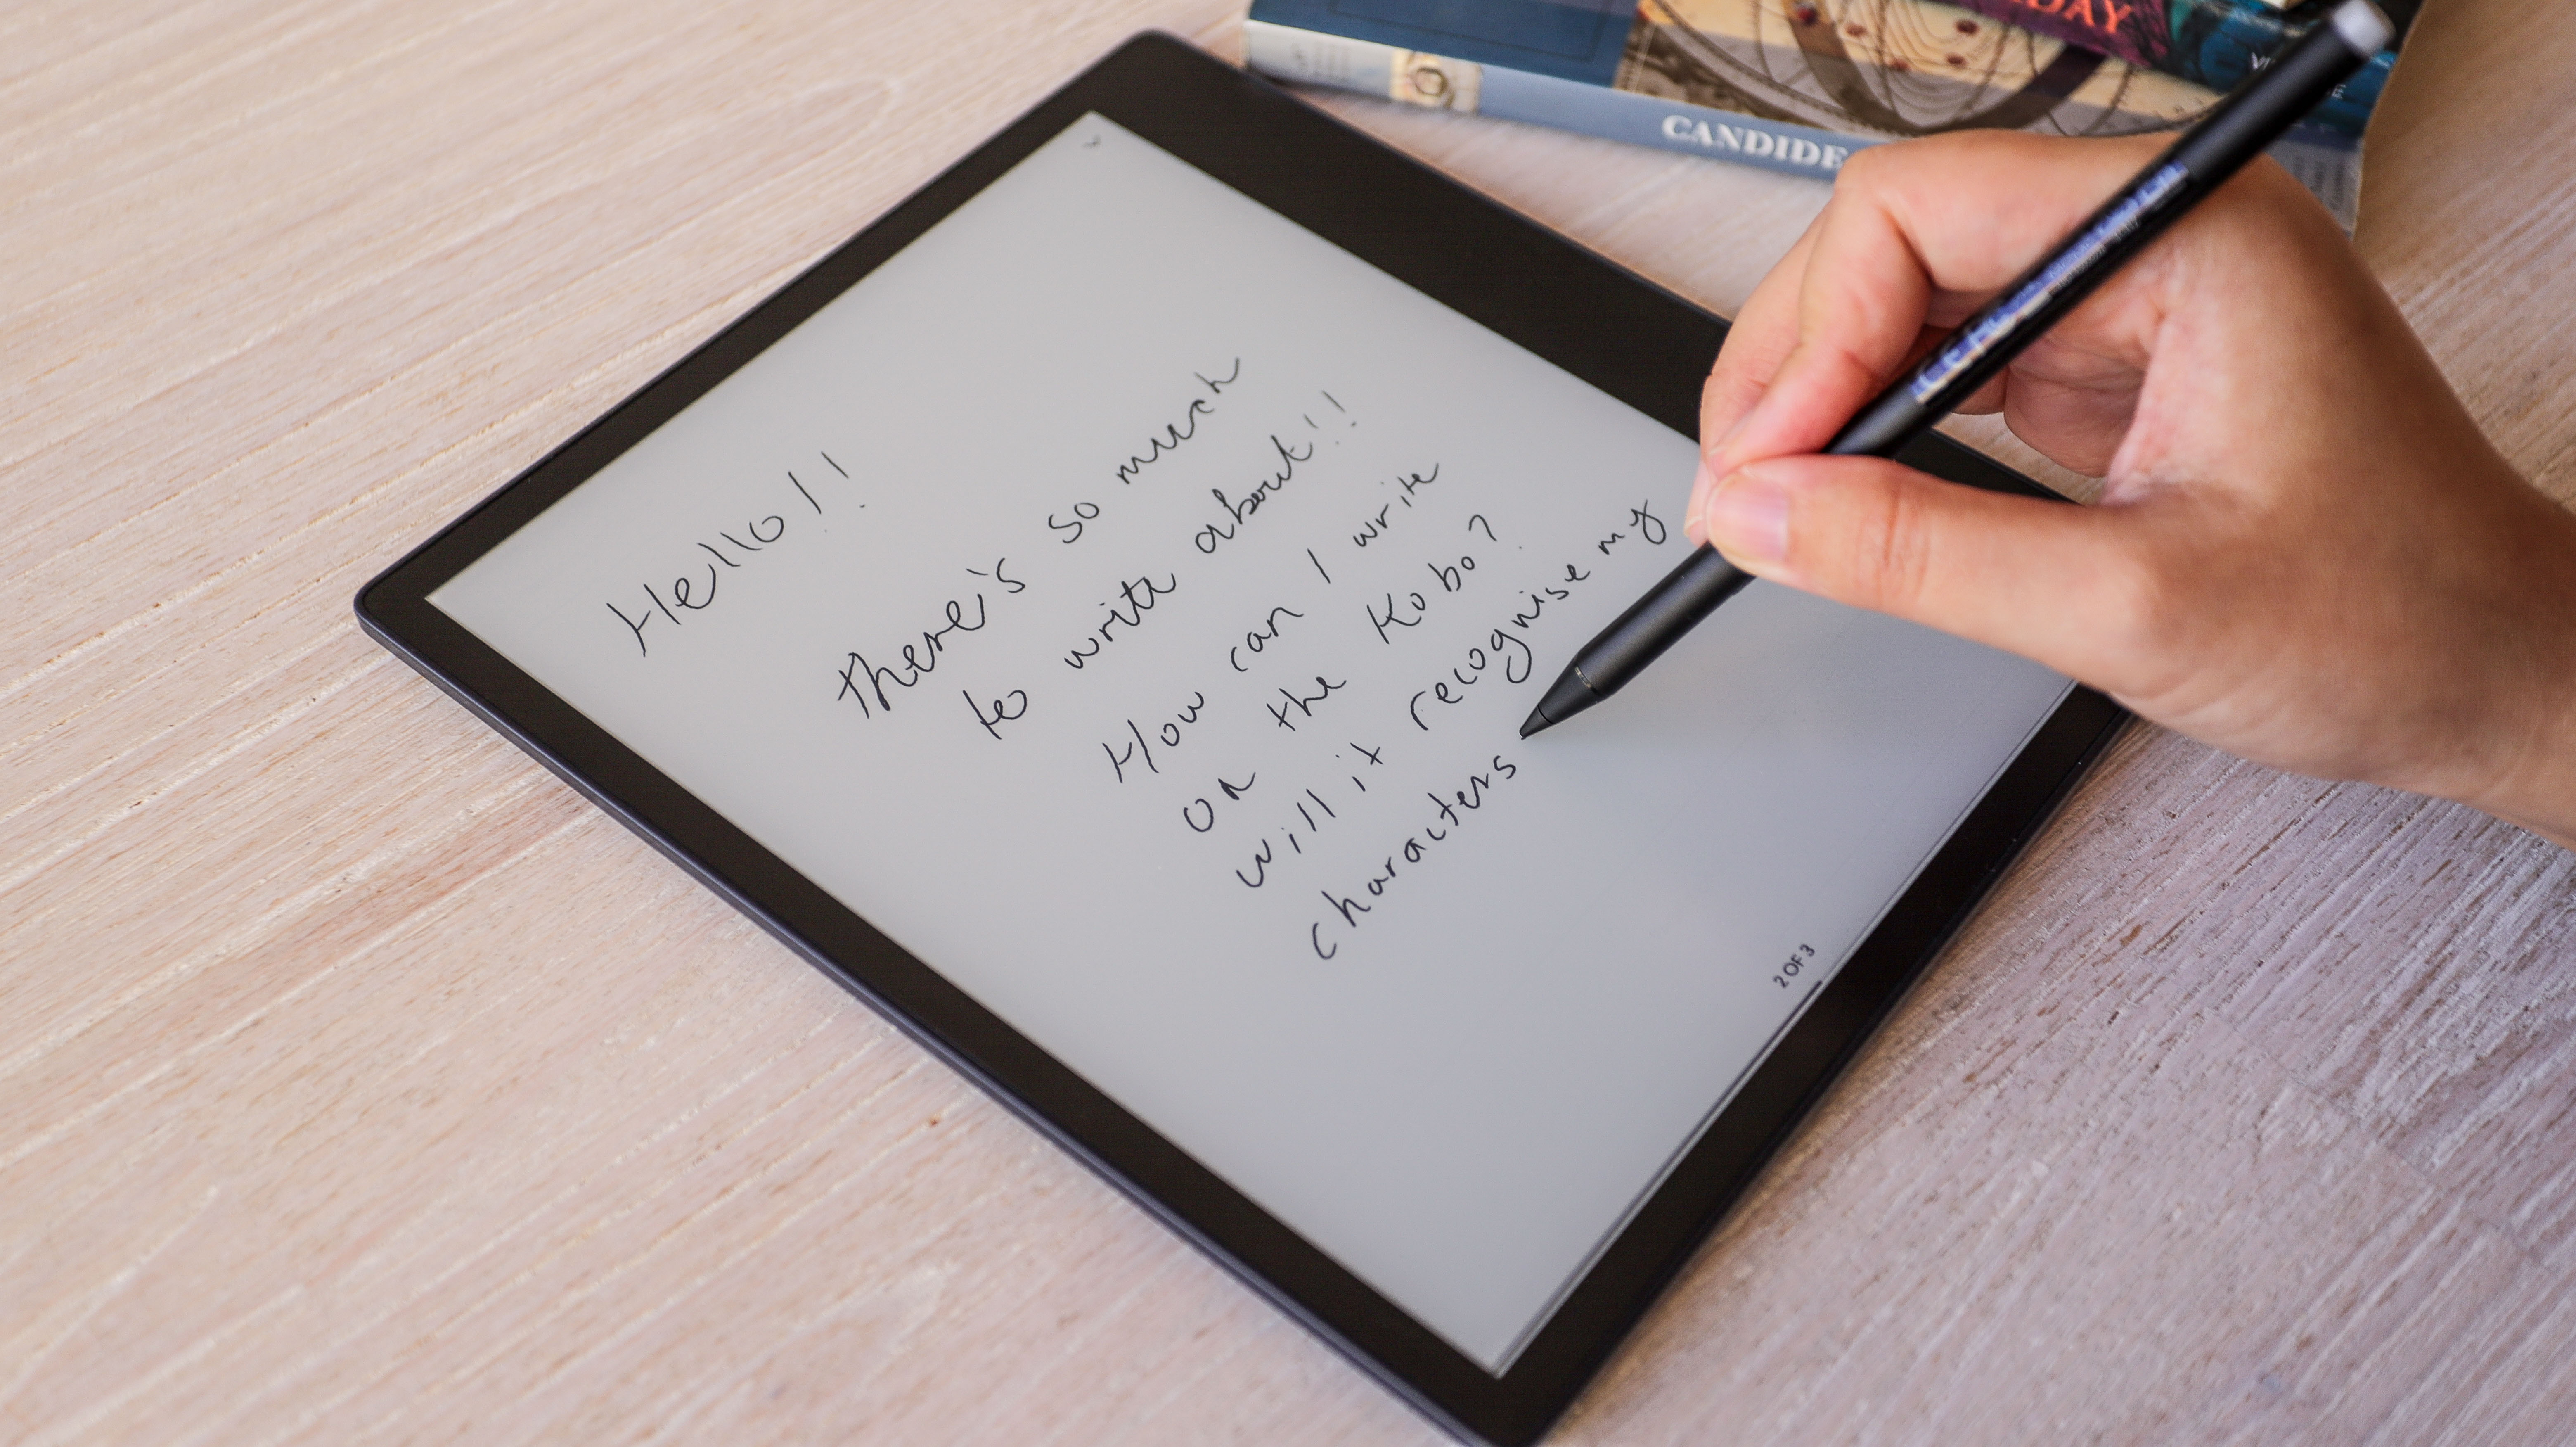 CANDIDE
Hello!!
There's so much
to write about!!
How can I write
on the Kobo?
Will it recognise my
characters
2 OF 3